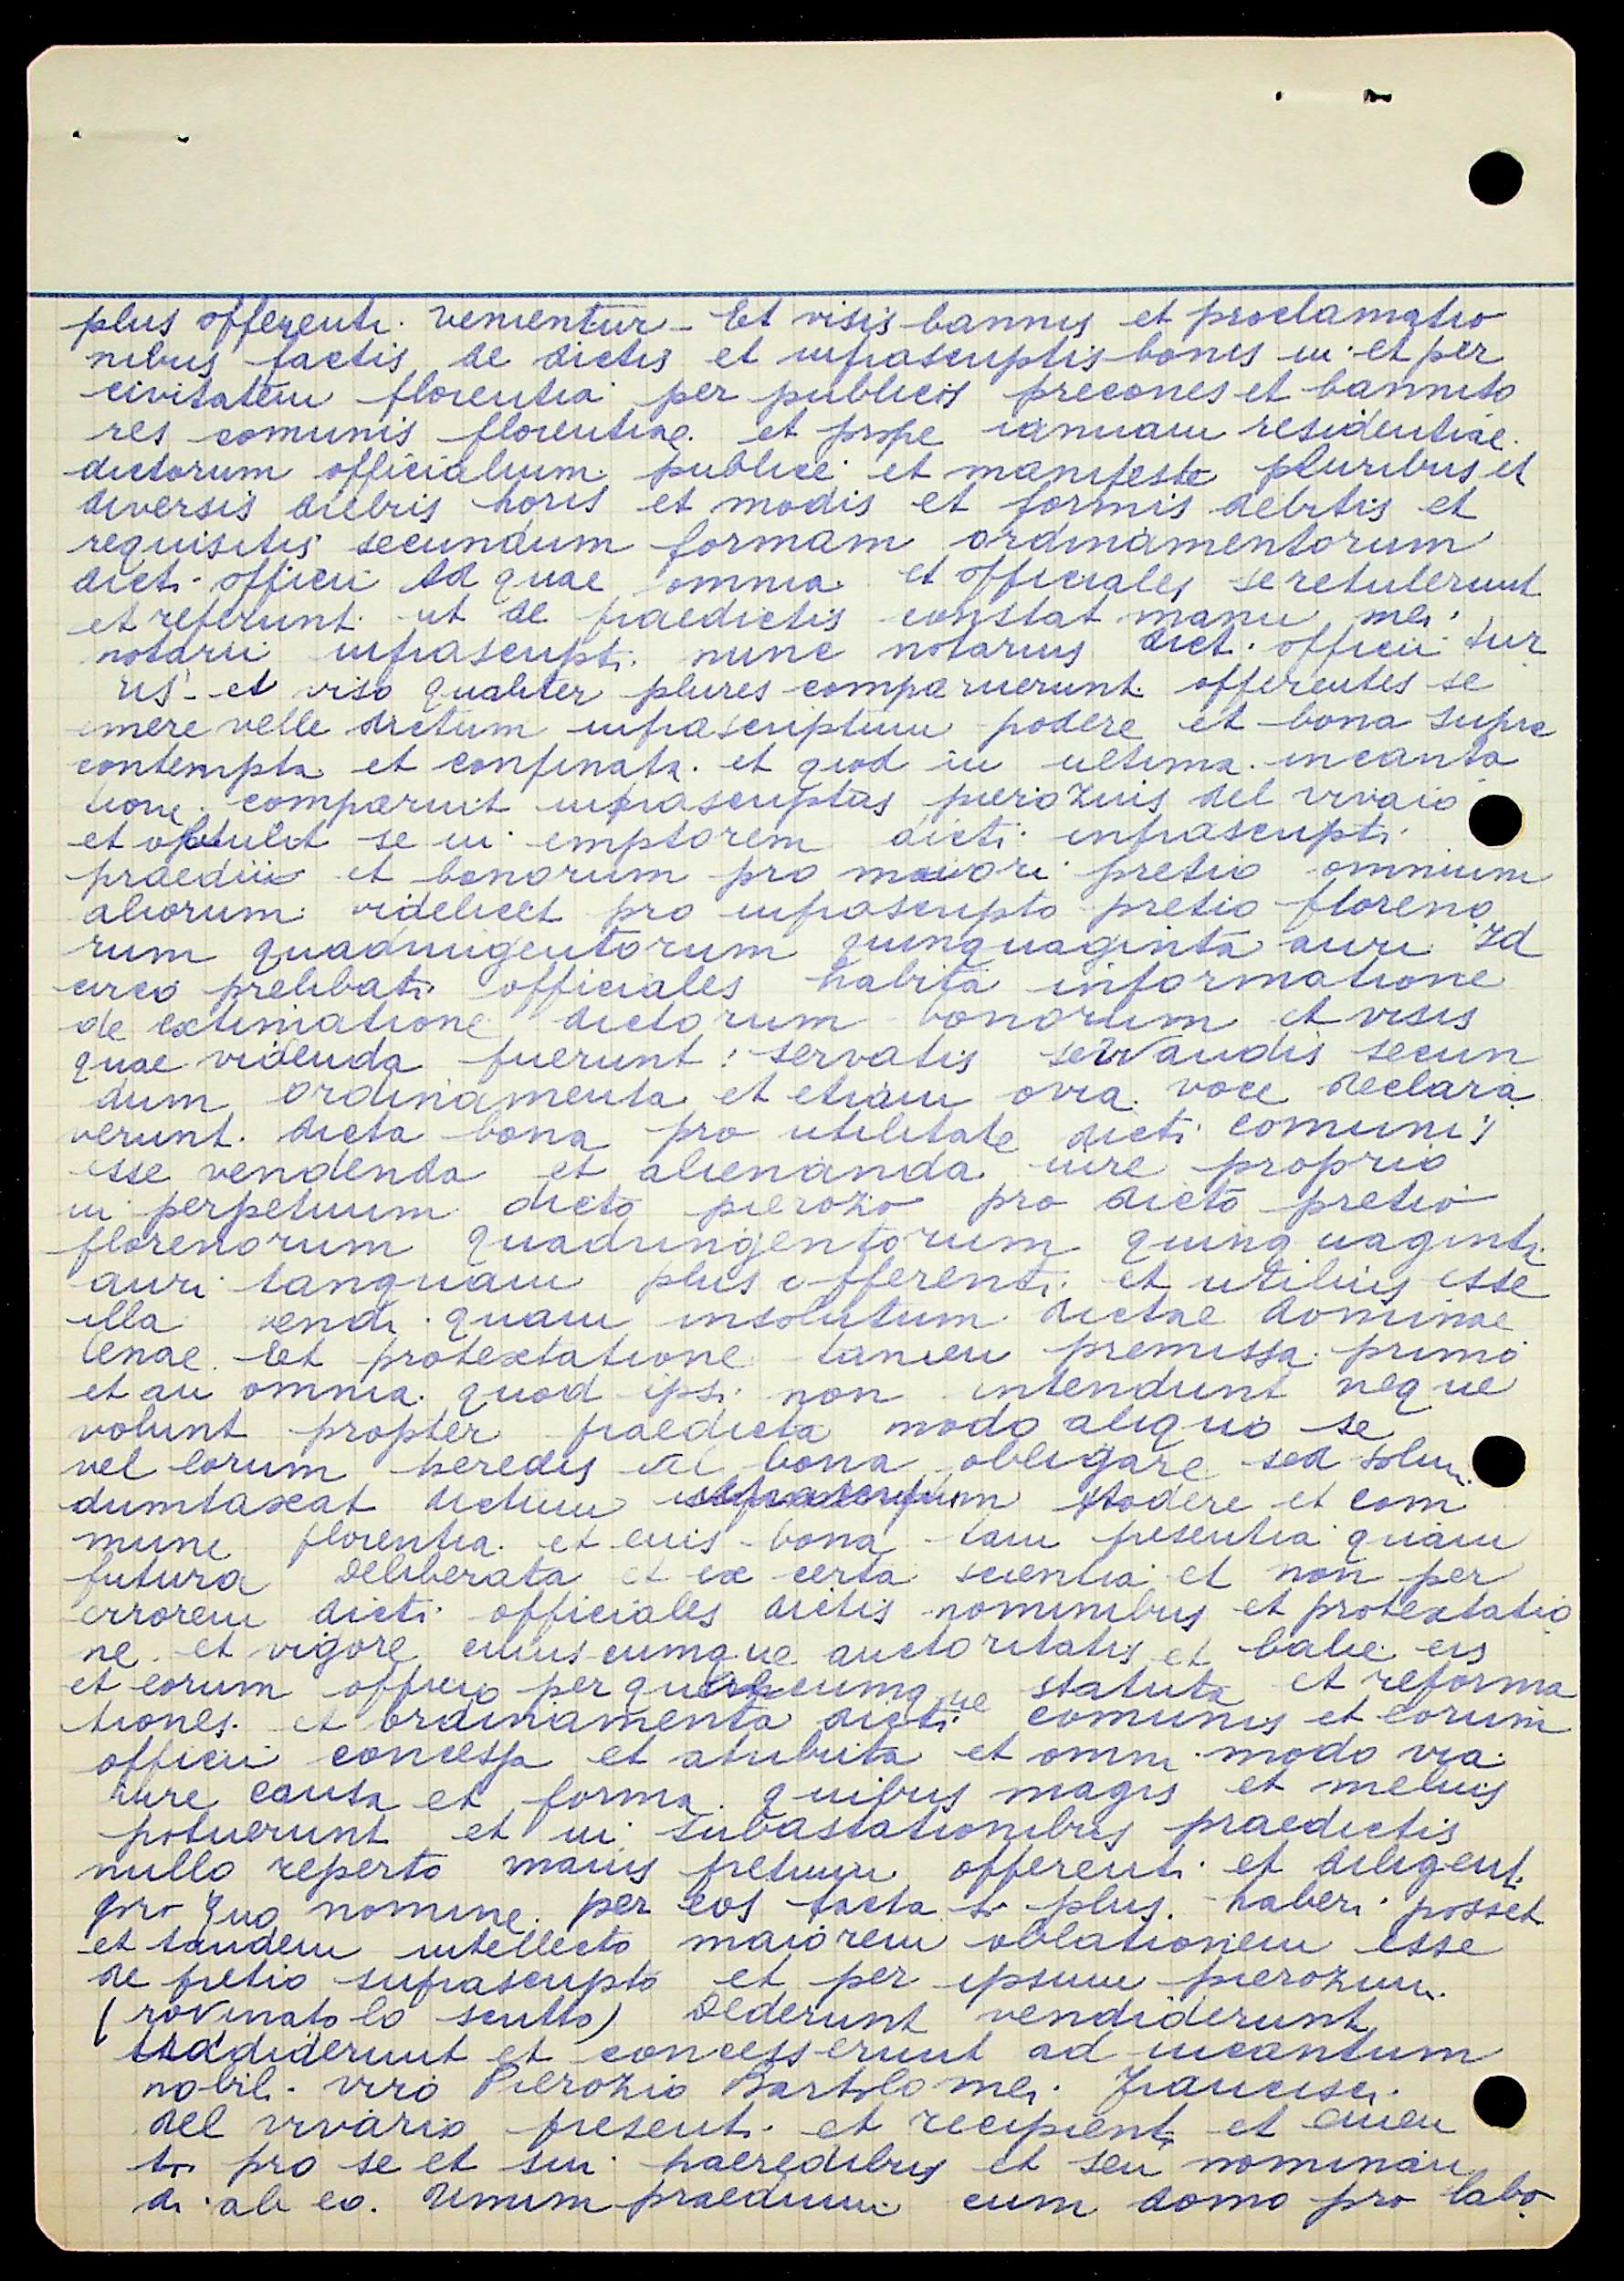 plus offerenti. venientur - Et visis bannis et proclamatio
nibus factis de dictis et infrascriptis bonis in et per
civitatem florentia per publicos precones et bannito
res comunis florentiae. et prope ianuam residentiae.
dictorum officialium publice et manifeste pluribus et
diversis diebris horis et modis et formis debitis et
requisitis secundum formam ordinamentorum
dicti officii Ad quae omnia et officiales se retulerunt
et referunt. ut de praedictis constat manu mei
notarii infrascripti. nunc notarius dicti. officii tur
ris - et viso qualiter plures comparuerunt offerentes se
emere velle dictum infrascriptum podere et bona supra
contempta et confinata. et quod in ultima. incanta
tione. comparuit infrascriptus pierozus del vivaio
et obtulit se in emptorem dicti infrascripti
praedii et bonorum pro maiori pretio omnium
aliorum: videlicet pro infrascripto pretio floreno
rum quadringentorum quinquaginta auri Id
circo prelibati officiales habita informatione
de extimatione dictorum bonorum et visis
quae videnda fuerunt: servatis servandis secun
dum ordinamenta et etiam oviva voce declara
verunt. dicta bona pro utilitate dicti comunis
esse vendenda et alienanda iure proprio
in perpetuum dicto pierozo pro dicto pretio
florenorum quadringentorum quinquaginta
auri tanquam plus offerenti. et utilius esse
illa vendi quam insolutum dictae dominae
Lenae. Et protextatione tamen premissa. primo
et an omnia. quod ipsi non intendunt neque
volunt propter praedicta modo aliquo se
vel eorum heredis vel bona obligare sed solum
dumtaxat dictum podere et com
mune florentia. et eius bona tam presentia quam
futura deliberata et ex certa scientia et non per
errorem dicti officiales dictis nominibus et protextatio
ne. et vigore cuiuscumque auctoritatis et balie eis
et eorum officio per quaecumque statuta et reforma
tiones. et ordinamenta dicti comunis et eorum
officii concessa et atributa et omni modo via
iure causa et forma. quibus magis et melius
potuerunt et in subastationibus praedictis
nullo reperto maius pretium offerenti et diligenti
pro quo nomine. per eos facta si plus. haberi posset
et tandem intellecto maiorem oblationem esse
de pretio suprascripto et per ipsum pierozum
(rovinato lo scritto) dederunt vendiderunt
tradiderunt et concesserunt ad incantum
nobili. viro Pierozio Bartolomei. Francisci.
del vivario presenti. et recipienti et emen
ti pro se et sui haeredibus et seu nominan
di. ab eo. Unum praedium cum domo pro labo